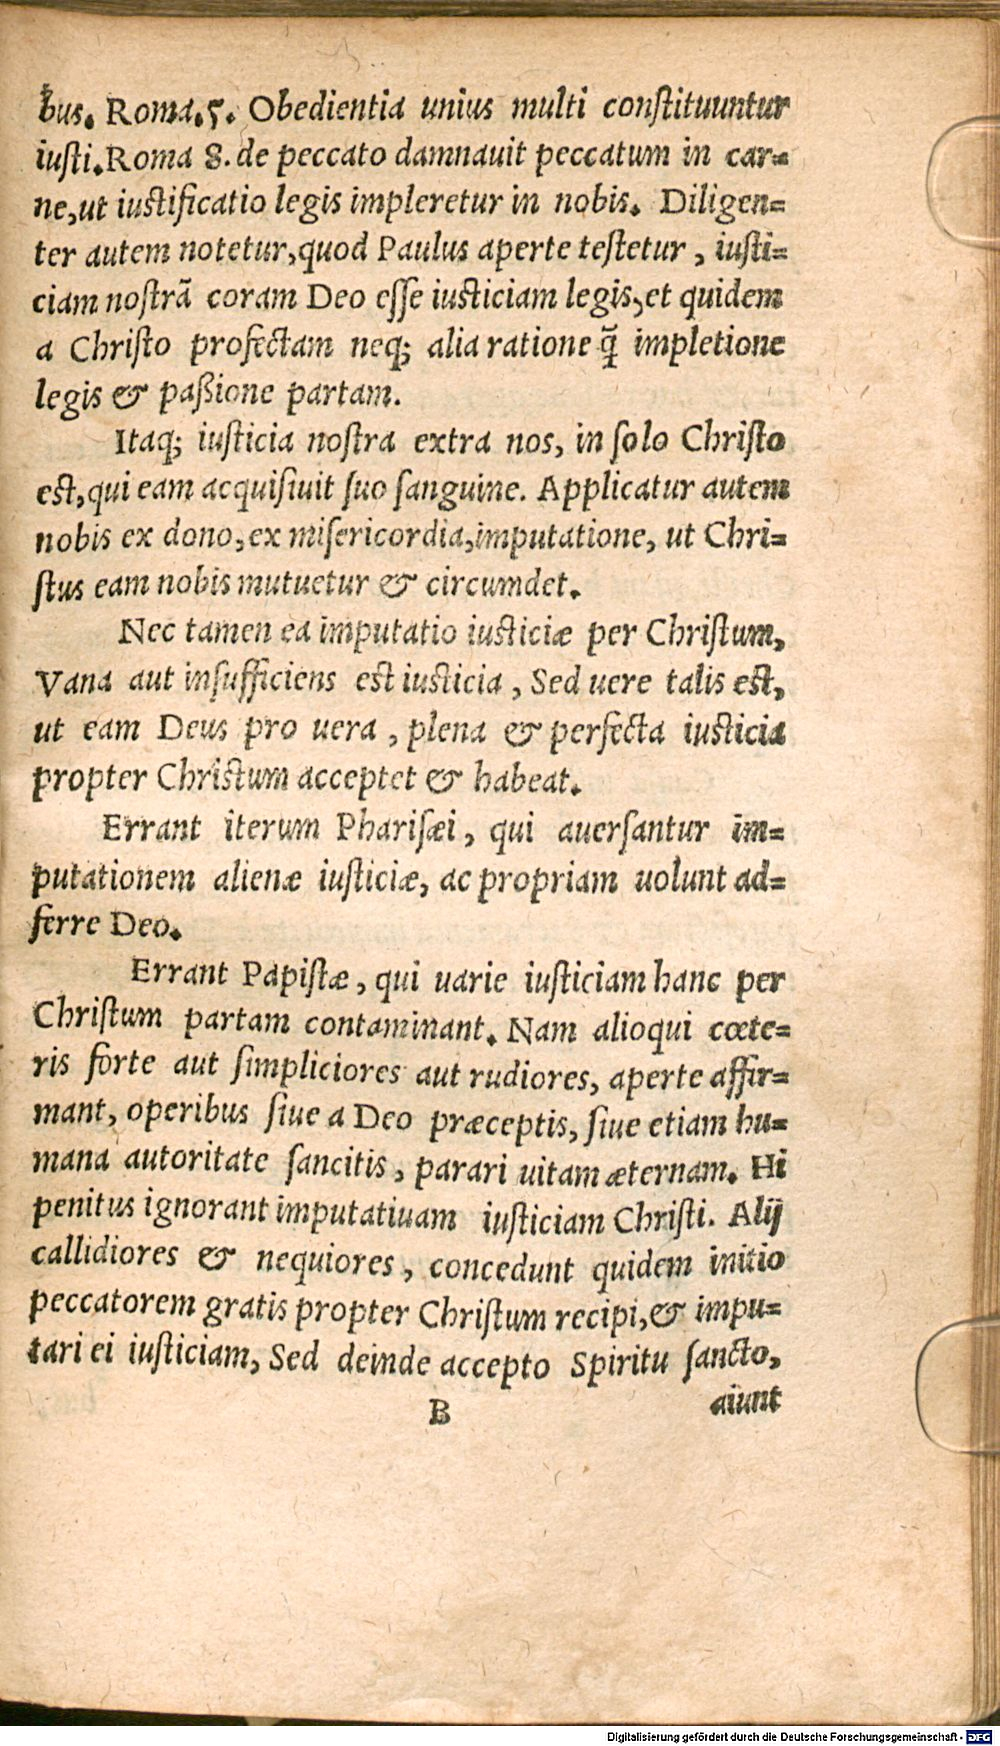 bus. Roma.5. Obedientia unius multi constituuntur
iusti.Roma 8. de peccato damnauit peccatum in car=
ne,ut iustificatio legis impleretur in nobis. Diligen=
ter autem notetur,quod Paulus aperte testetur, iusti=
ciam nostrã coram Deo esse iusticiam legis,et quidem
a Christo profectam neq; alia ratione q̃ impletione
legis & paßione partam.
Itaq; iusticia nostra extra nos, in solo Christo
est,qui eam acquisiuit suo sanguine. Applicatur autem
nobis ex dono,ex misericordia,imputatione, ut Chri=
stus eam nobis mutuetur & circumdet.
Nec tamen ea imputatio iusticiæ per Christum,
Vana aut insufficiens est iusticia, Sed uere talis est,
ut eam Deus pro uera, plena & perfecta iusticia
propter Christum acceptet & habeat.
Errant iterum Pharisæi, qui auersantur im=
putationem alienæ iusticiæ, ac propriam uolunt ad=
ferre Deo.
Errant Papistæ, qui uarie iusticiam hanc per
Christum partam contaminant. Nam alioqui cœte=
ris forte aut simpliciores aut rudiores, aperte affir=
mant, operibus siue a Deo præceptis, siue etiam hu=
mana autoritate sancitis, parari uitam æternam. Hi
penitus ignorant imputatiuam iusticiam Christi. Alij
callidiores & nequiores, concedunt quidem initio
peccatorem gratis propter Christum recipi,& impu=
tari ei iusticiam, Sed deinde accepto Spiritu sancto,
B aiunt
Digitalisierung gefördert durch die Deutsche Forschungsgemeinschaft - DFG